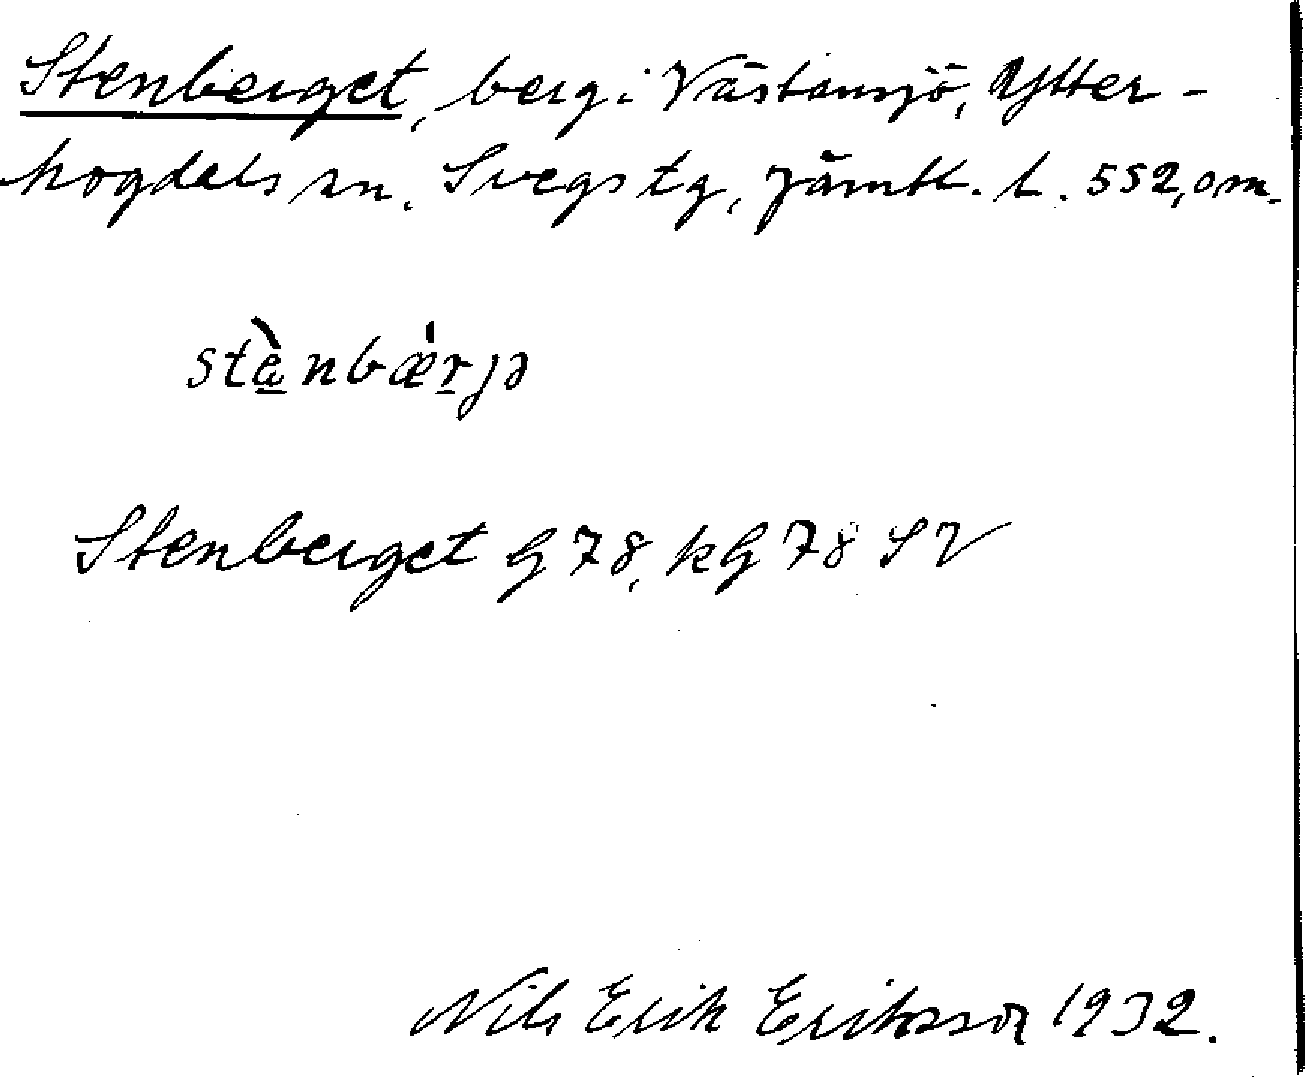 Stenberget, berg i Västansjö, Ytter-
hogdals sn. Svegs tg, Jämtl. l. 552,0 m.
stènbæ̀r̠jə
Stenberget G 78, kG 78 SV
Nils Erik Eriksson 1932.